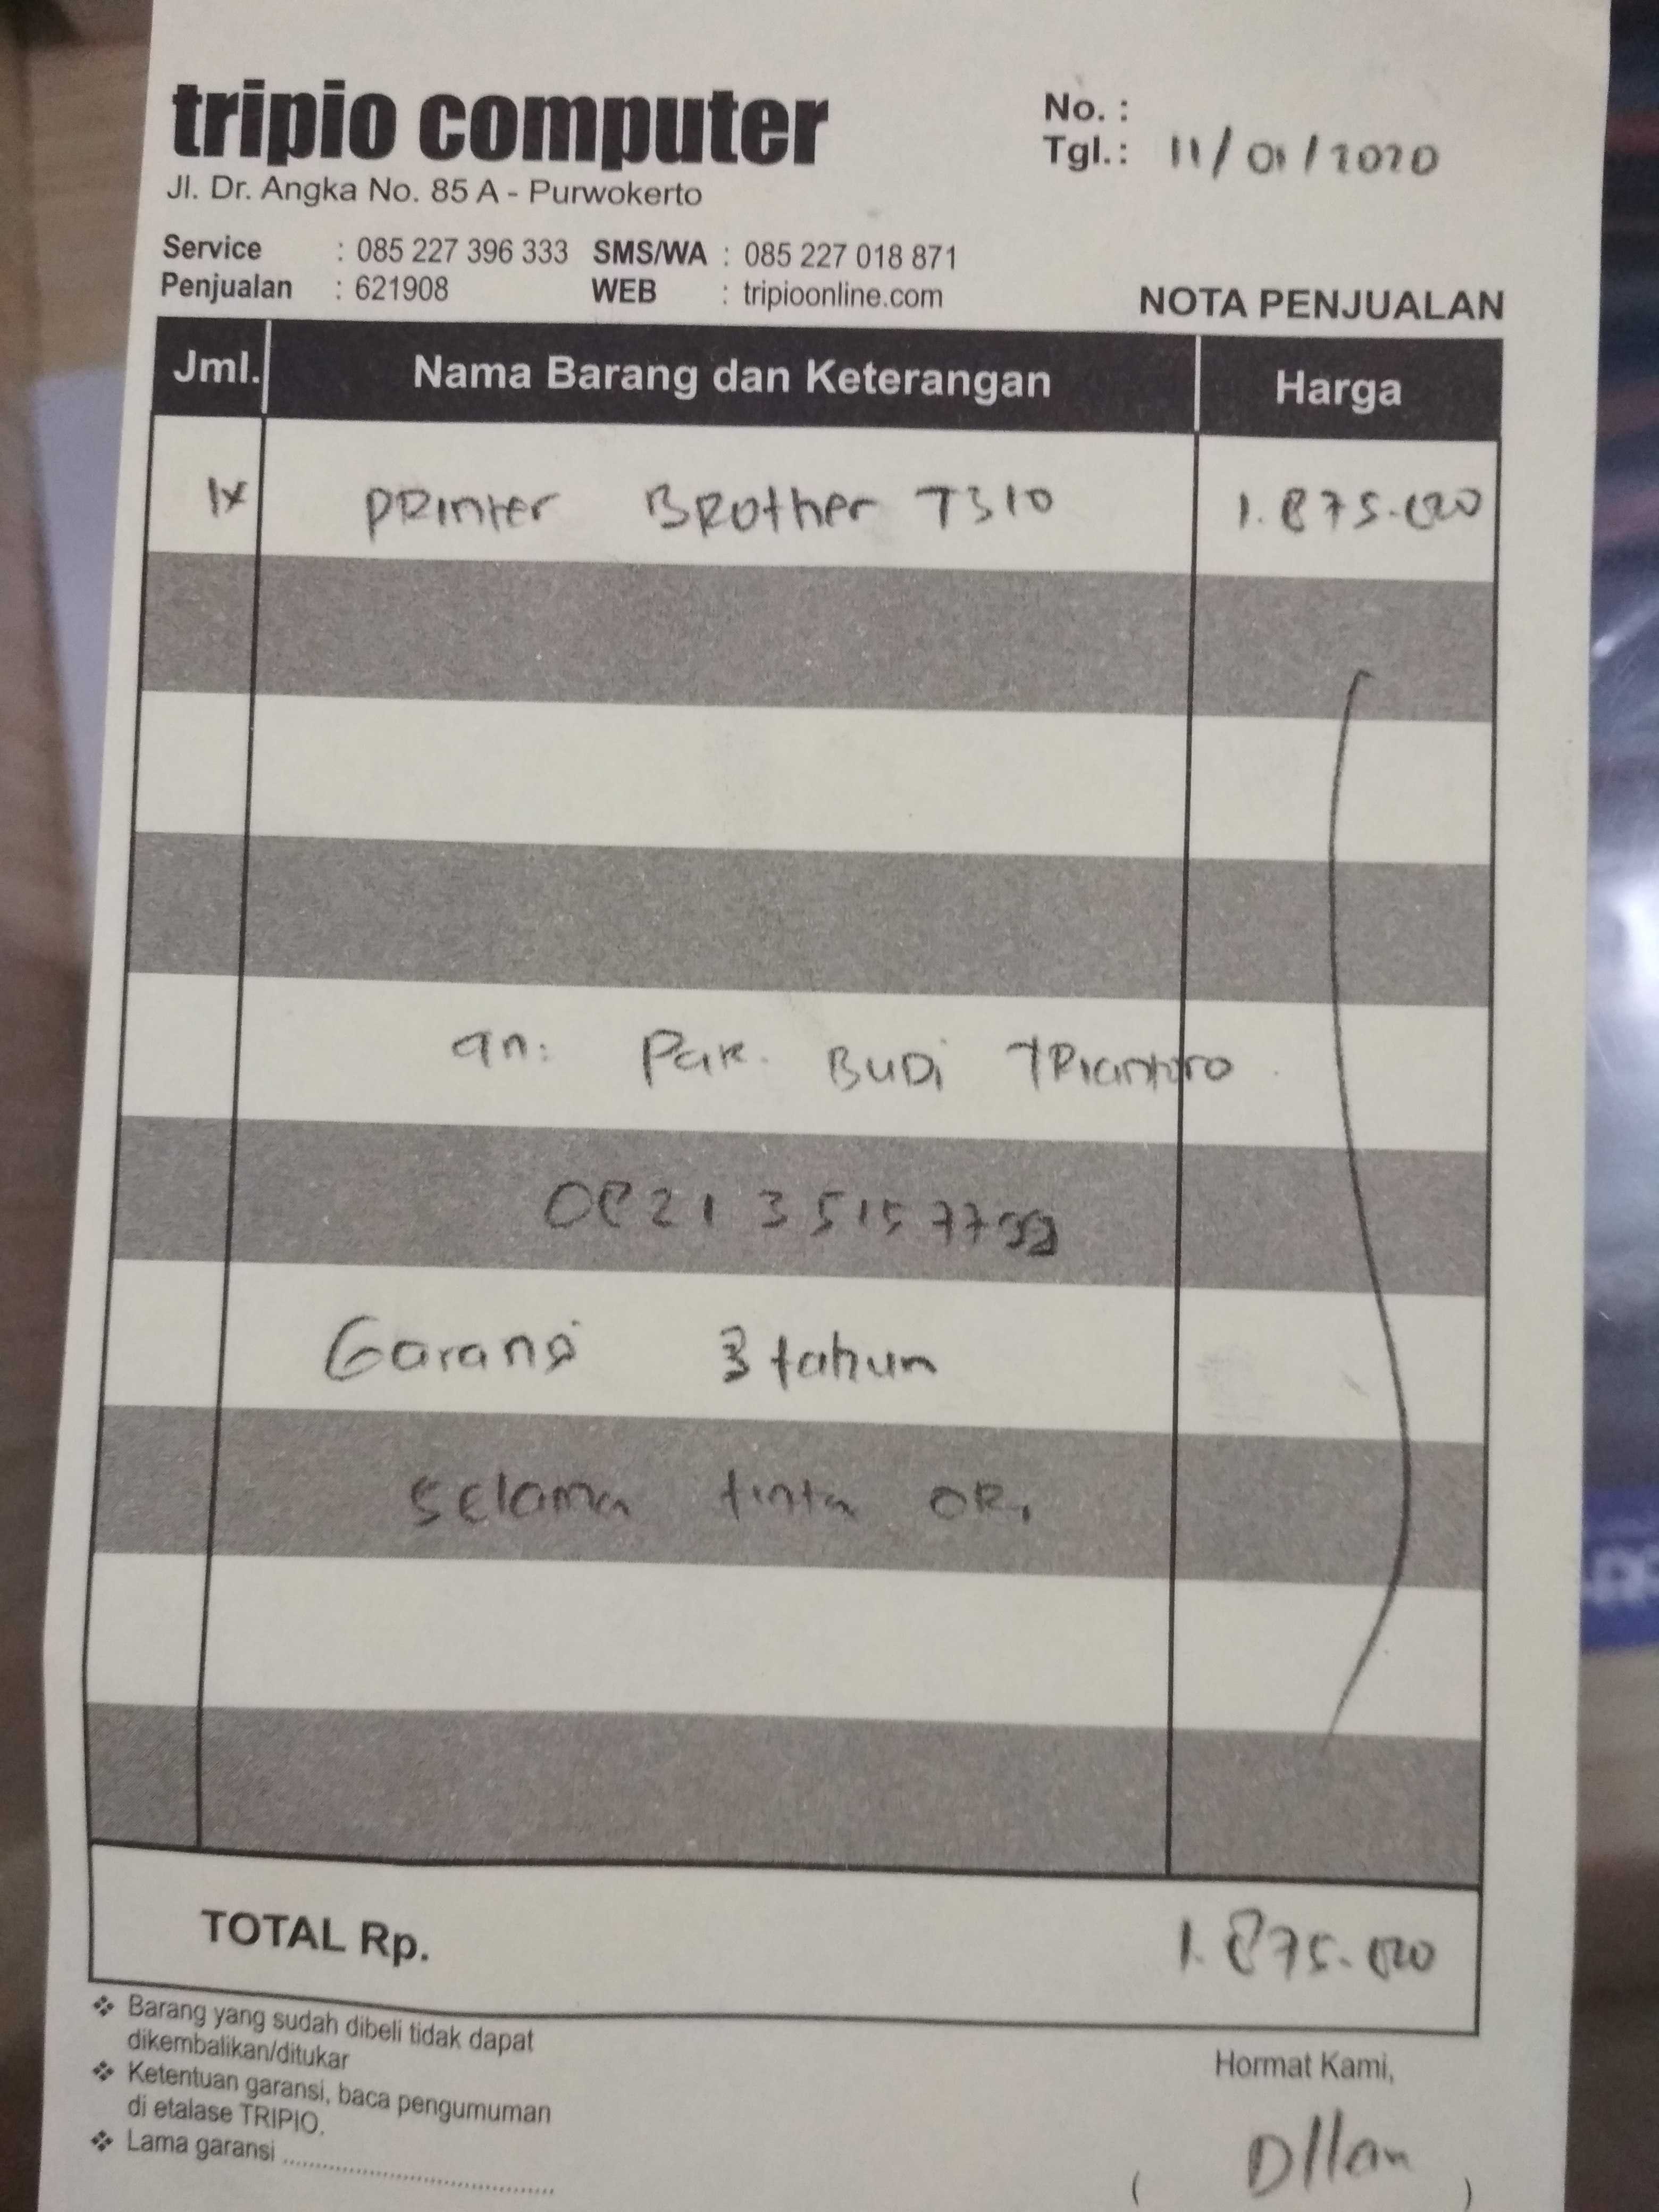 tripio computer
Jl. Dr. Angka No. 85 A - Purwokerto
No. :
Tgl. : 11/01/2020
Service : 085 227 396 333 SMS/WA : 085 227 018 871
Penjualan : 621908 WEB : tripioonline.com
NOTA PENJUALAN
Jml. Nama Barang dan Keterangan Harga
1x Printer Brother T310 1.875.000
an: Pak. Budi Triantoro
Garansi 3 tahun
selama tinta ORI
TOTAL Rp. 1.875.000
❖ Barang yang sudah dibeli tidak dapat
dikembalikan/ditukar
❖ Ketentuan garansi, baca pengumuman
di etalase TRIPIO.
❖ Lama garansi ........................................
Hormat Kami,
( Dllan )